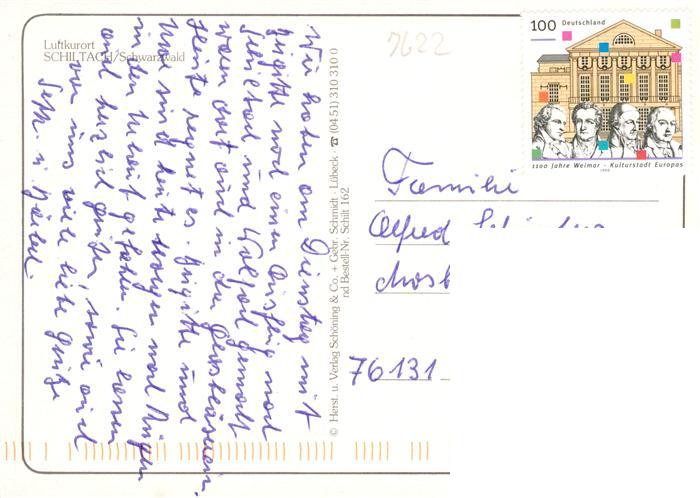 Luftkurort
SCHILTACH/Schwarzwald
7622
100 Deutschland
1100 Jahre Weimar - Kulturstadt Europas
1999
Wir haben am Dienstag mit
Brigitte noch einen Ausflug nach
und Wolfach gemacht
waren auf und in der Glasbläserei.
Heute regnet es. Brigitte und
Max sind heute Morgen nach
in den gefahren. Sie lassen
auch herzlich grüßen, sowie auch
von uns viele liebe Grüße
u. Bärbel.
© Herst. u. Verlag Schöning & Co. + Gebr. Schmidt · Lübeck · ☎ (04 51) 310 310 0
nd Bestell-Nr. Schilt 162
Familie
Alfred
Mosb
76131